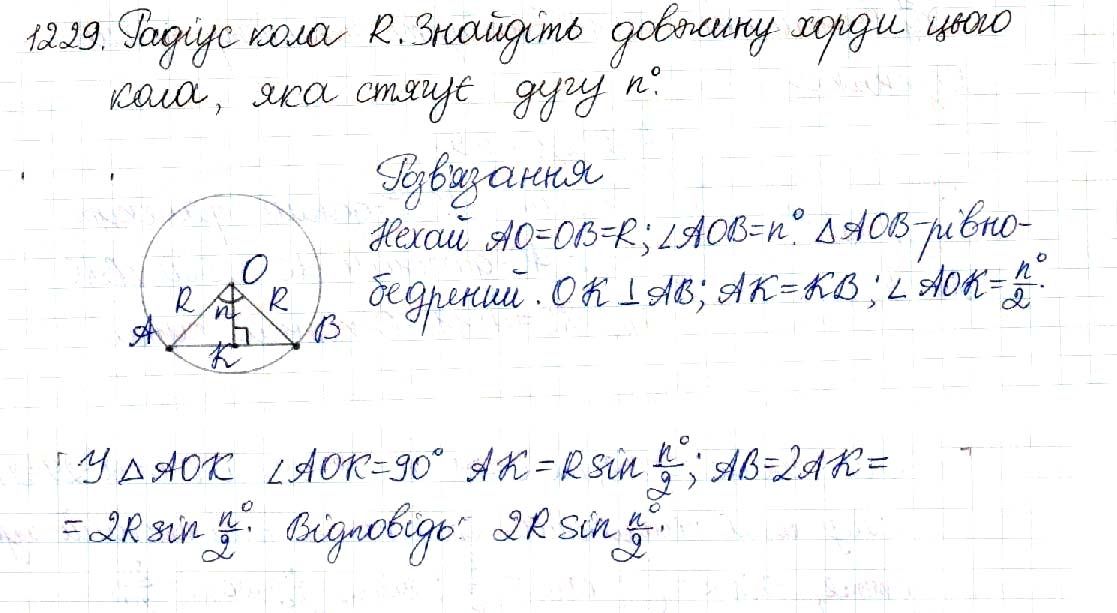 1229. Радіус кола R. Знайдіть довжину хорди цього
кола, яка стягує дугу n°.
Розв'язання
Нехай AO=OB=R; ∠AOB=n°. △AOB-рівно-
бедрений. OK⊥AB; AK=KB; ∠AOK=n°/2.
O
R n R
A K B
У △AOK ∠AOK=90° AK=R sin n°/2; AB=2AK=
=2R sin n°/2. Відповідь: 2R sin n°/2.